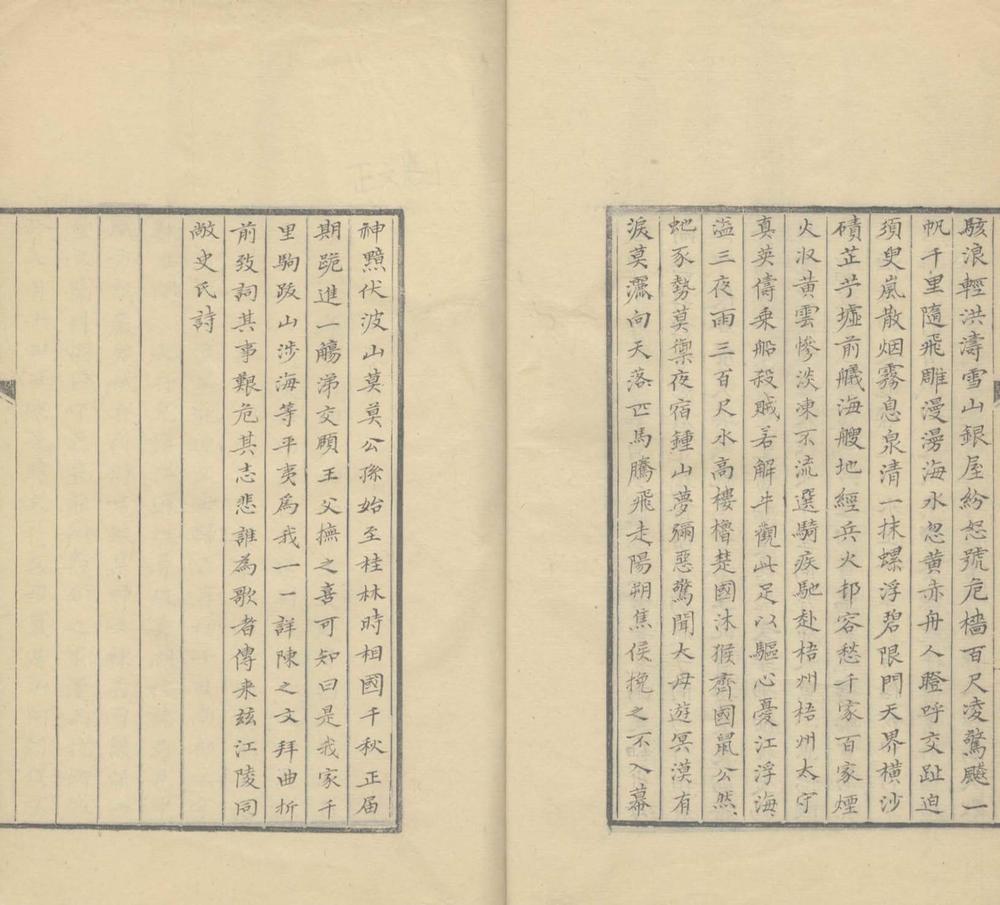 駭浪輕洪濤雪山銀屋紛怒號危檣百尺凌驚飈一
帆千里隨飛雕漫漫海水忽黃赤舟人瞪呼交趾迫
須臾嵐散烟霧息泉清一抹螺浮碧限門天界橫沙
磧芷芋墟前艤海艘地經兵火邨容愁千家百家煙
火收黃雲慘淡凍不流選騎疾馳赴梧州梧州太守
真英儔乘船殺賊若解牛觀此足以驅心憂江浮海
溢三夜雨三百尺水高樓櫓楚國沐猴齊國鼠公然
虵豕勢莫禦夜宿鍾山夢彌惡驚聞大母遊冥漠有
淚莫灑向天落匹馬騰飛走陽朔焦侯挽之不入幕
神黯伏波山莫莫公孫始至桂林時相國千秋正届
期跪進一觴涕交頤王父撫之喜可知曰是我家千
里駒跋山涉海等平夷為我一一詳陳之文拜曲折
前致詞其事艱危其志悲誰為歌者傳来兹江陵同
敞史氏詩